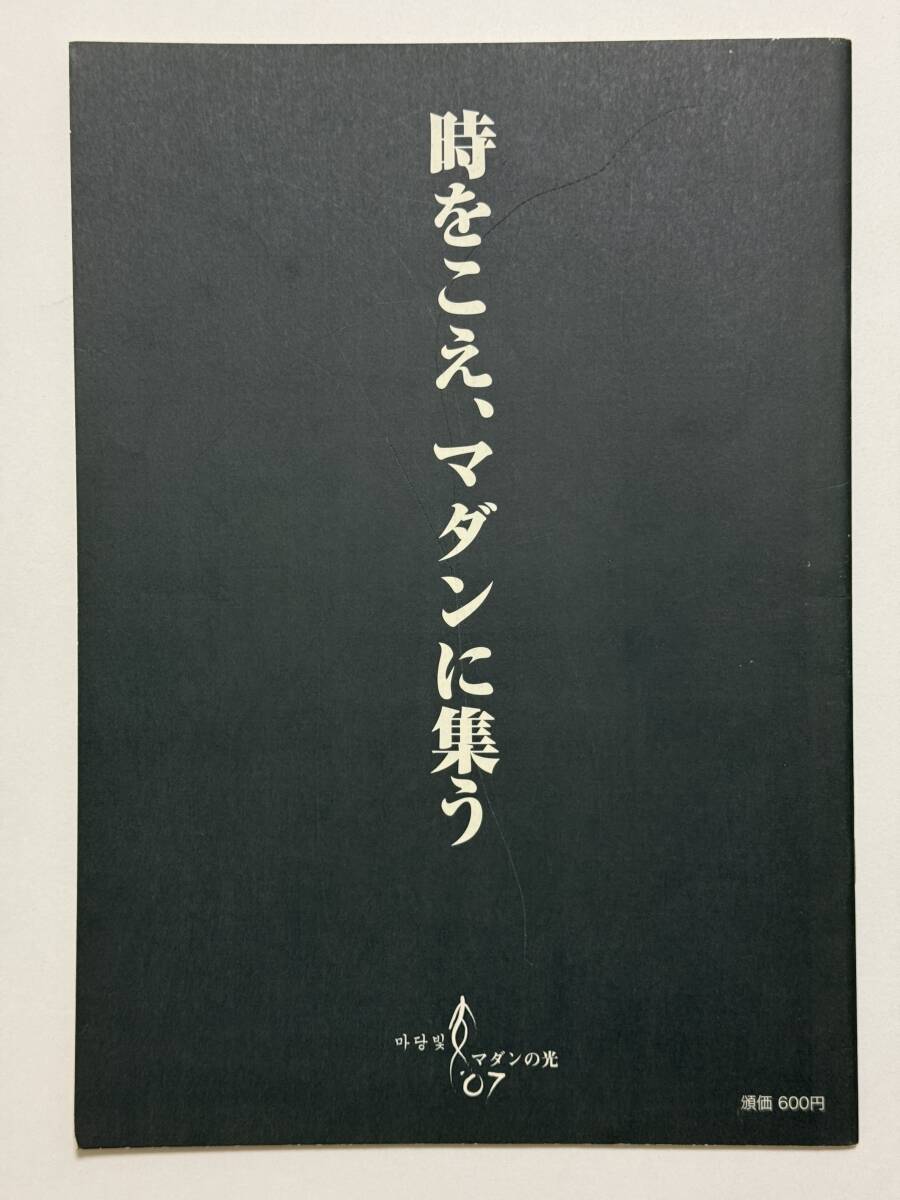 時をこえ、マダンに集う
마당빛
マダンの光
'07
頒価 600円